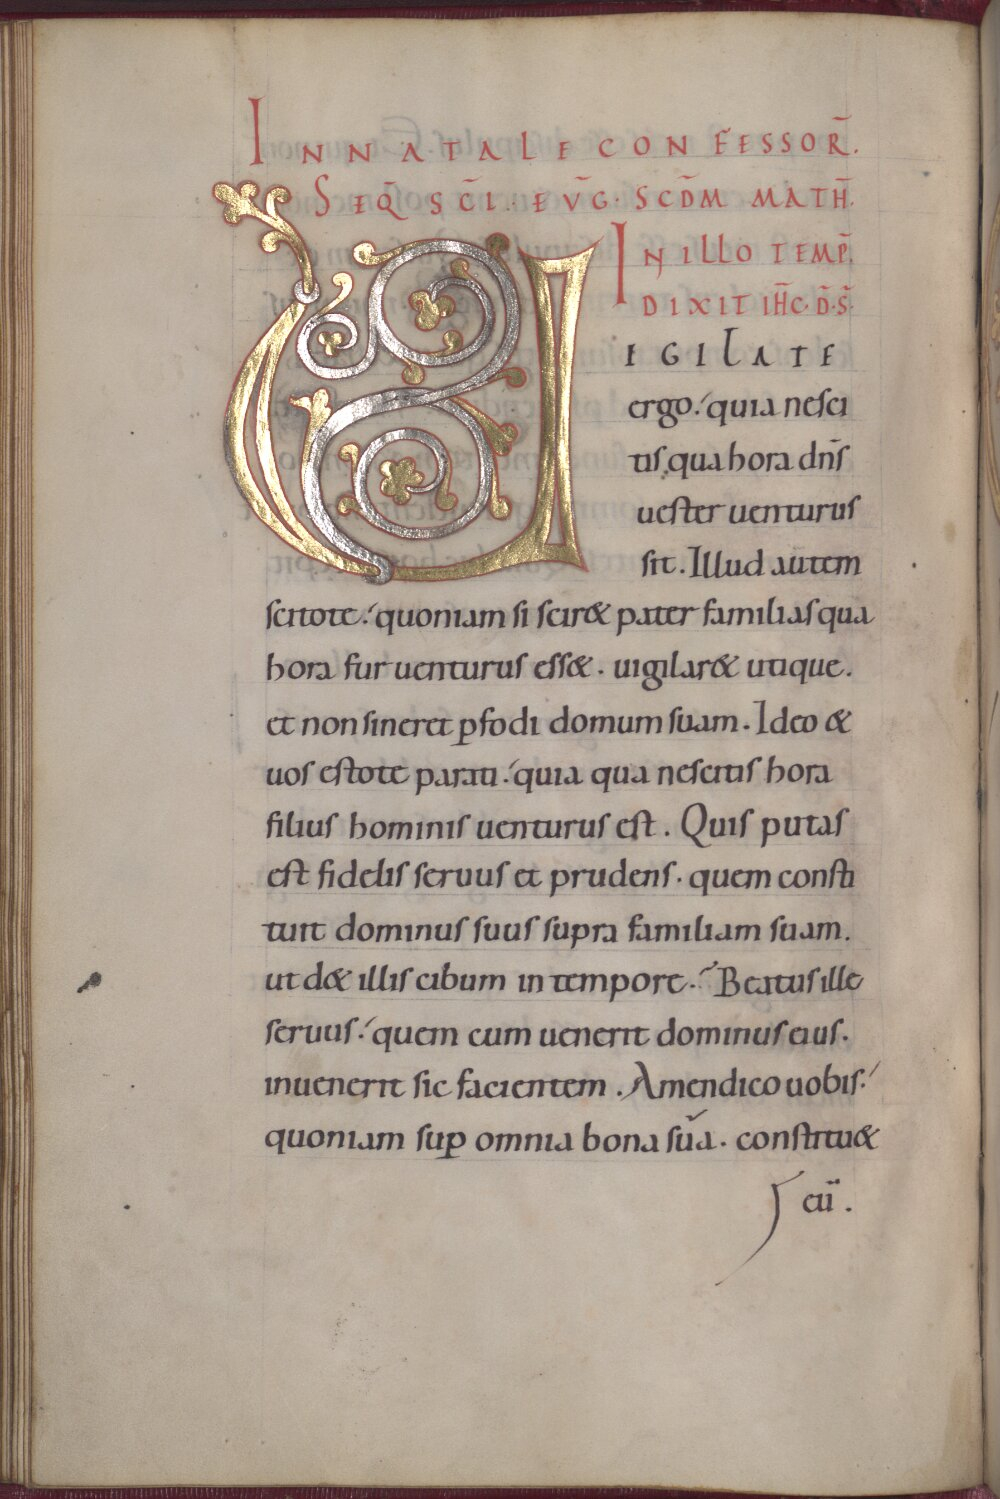 IN NATALE CONFESSOR̄.
SEQ̄ SC̄I. EVḠ. SCD̄M MATH̄.
IN ILLO TEMP̄.
DIXIT IH̄C. D̄. S̄.
VIGILATE
ergo. quia nesci
tis, qua hora dn̄s
uester uenturus
sit. Illud autem
scitote. quoniam si scir& pater familias qua
hora fur uenturus ess&. uigilar& utique.
et non sineret p̱fodi domum suam. Ideo &
uos estote parati. quia qua nescitis hora
filius hominis uenturus est. Quis putas
est fidelis seruus et prudens. quem consti
tuit dominus suus supra familiam suam.
ut d& illis cibum in tempore. Beatus ille
seruus. quem cum uenerit dominus eius.
inuenerit sic facientem. Amen dico uobis.
quoniam sup̱ omnia bona sua. constitu&
eū.